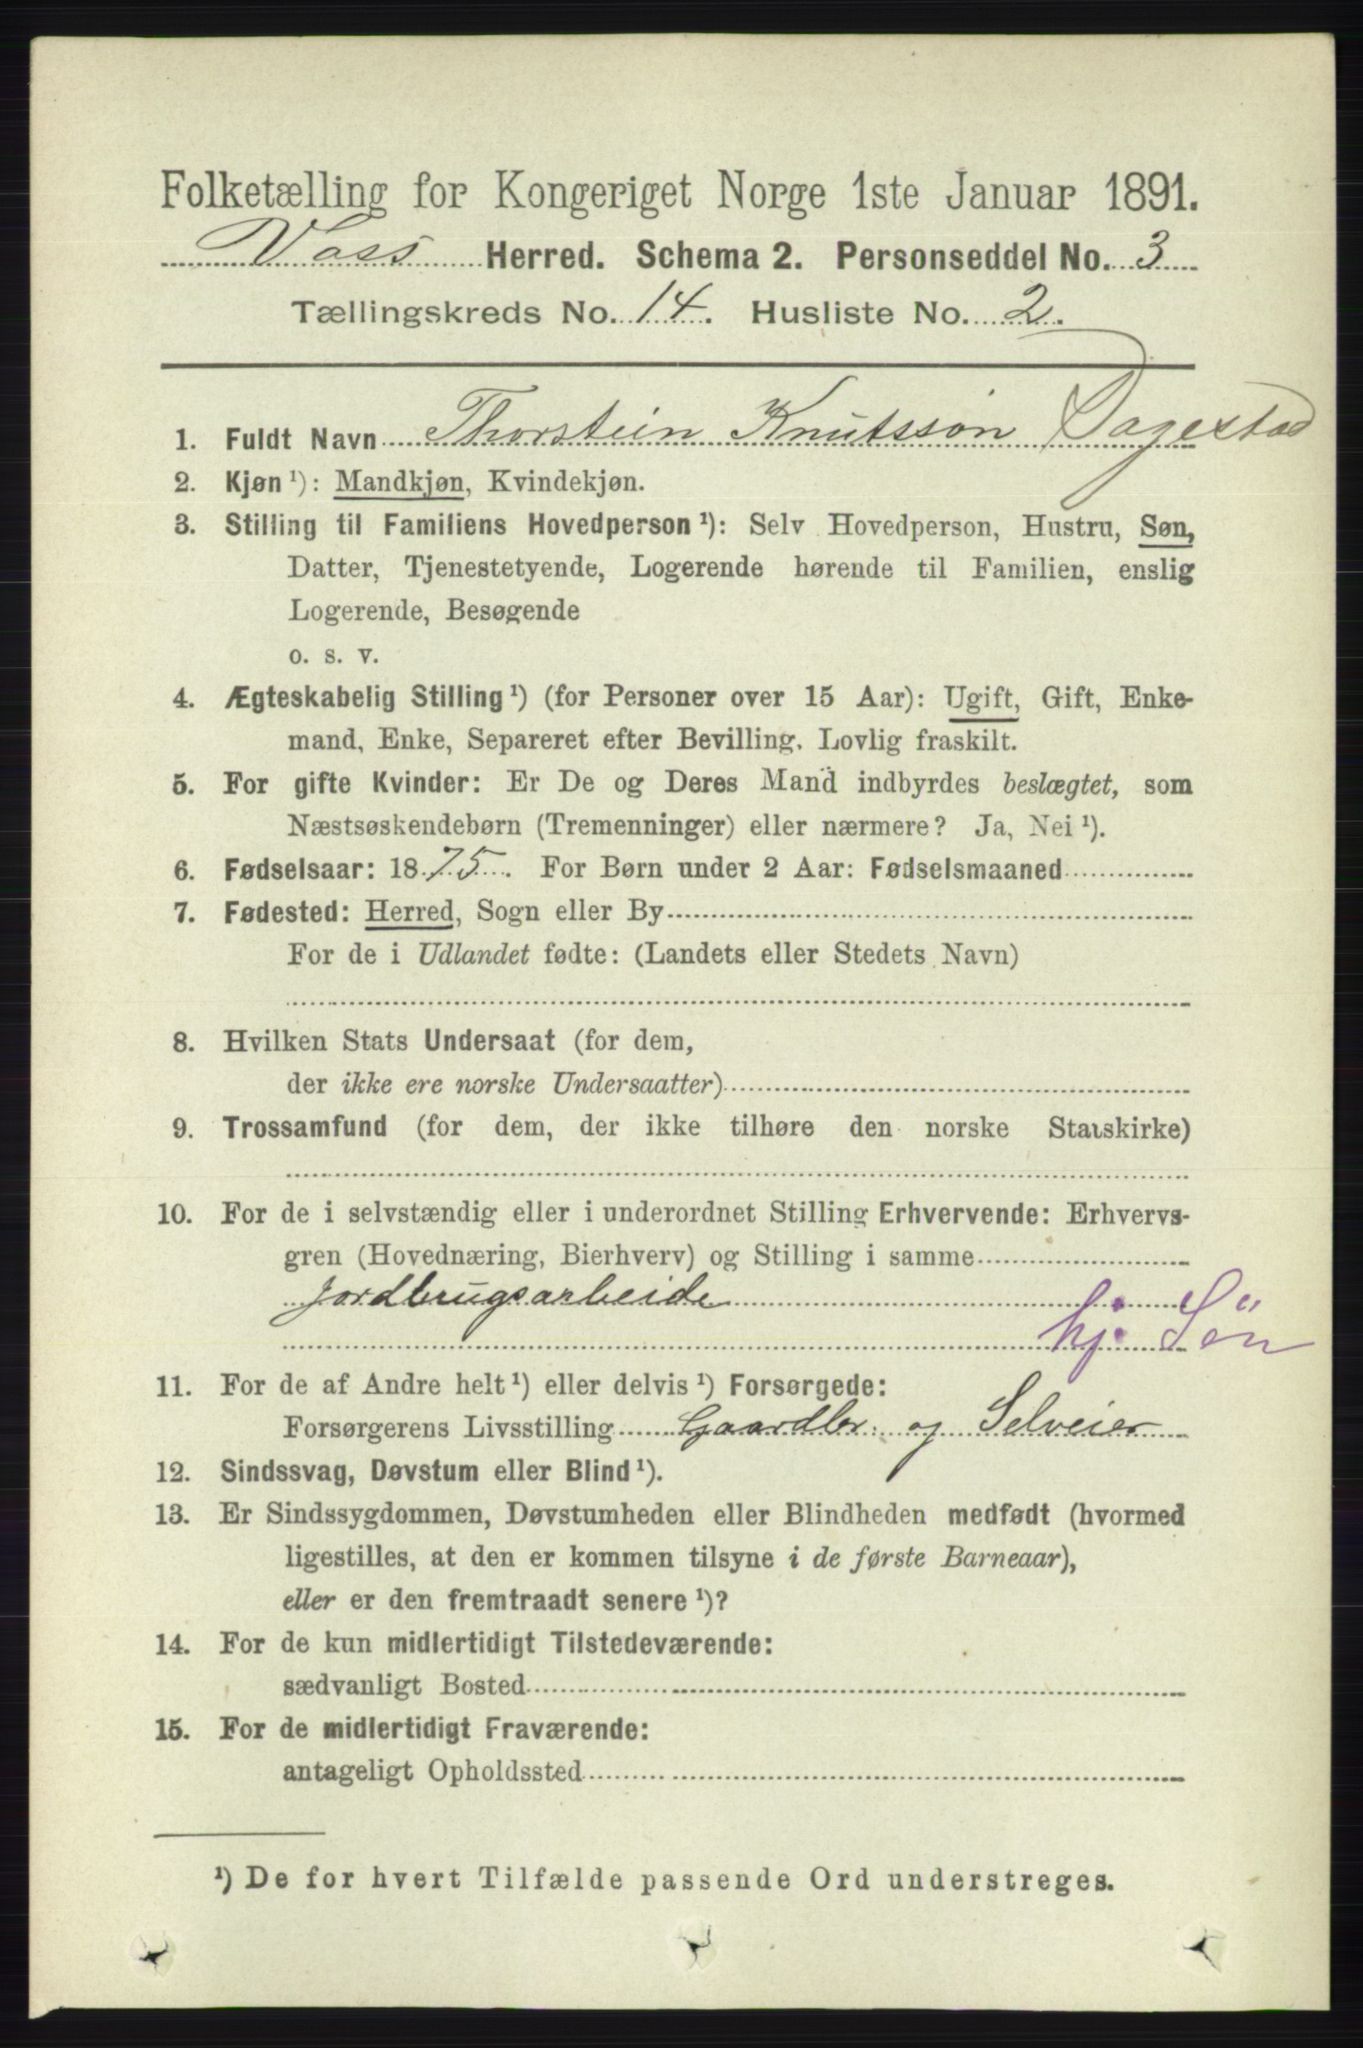 Folketælling for Kongeriget Norge 1ste Januar 1891.
Voss Herred. Schema 2. Personseddel No. 3
Tællingskreds No. 14. Husliste No. 2.
1. Fuldt Navn Thorstein Knutsson Dagestad
2. Kjøn ¹): Mandkjøn, Kvindekjøn.
3. Stilling til Familiens Hovedperson ¹): Selv Hovedperson, Hustru, Søn,
Datter, Tjenestetyende, Logerende hørende til Familien, enslig
Logerende, Besøgende
o. s. v.
4. Ægteskabelig Stilling ¹) (for Personer over 15 Aar): Ugift, Gift, Enke-
mand, Enke, Separeret efter Bevilling. Lovlig fraskilt.
5. For gifte Kvinder: Er De og Deres Mand indbyrdes beslægtet, som
Næstsøskendebørn (Tremenninger) eller nærmere? Ja, Nei ¹).
6. Fødselsaar: 1875. For Børn under 2 Aar: Fødselsmaaned
7. Fødested: Herred, Sogn eller By
For de i Udlandet fødte: (Landets eller Stedets Navn)
8. Hvilken Stats Undersaat (for dem,
der ikke ere norske Undersaatter)
9. Trossamfund (for dem, der ikke tilhøre den norske Statskirke)
10. For de i selvstændig eller i underordnet Stilling Erhvervende: Erhvervs-
gren (Hovednæring, Bierhverv) og Stilling i samme
Jordbrugsarbeide
hj. Sön
11. For de af Andre helt ¹) eller delvis ¹) Forsørgede:
Forsørgerens Livsstilling Gaardbr. og Selveier
12. Sindssvag, Døvstum eller Blind ¹).
13. Er Sindssygdommen, Døvstumheden eller Blindheden medfødt (hvormed
ligestilles, at den er kommen tilsyne i de første Barneaar),
eller er den fremtraadt senere ¹)?
14. For de kun midlertidigt Tilstedeværende:
sædvanligt Bosted
15. For de midlertidigt Fraværende:
antageligt Opholdssted
¹) De for hvert Tilfælde passende Ord understreges.